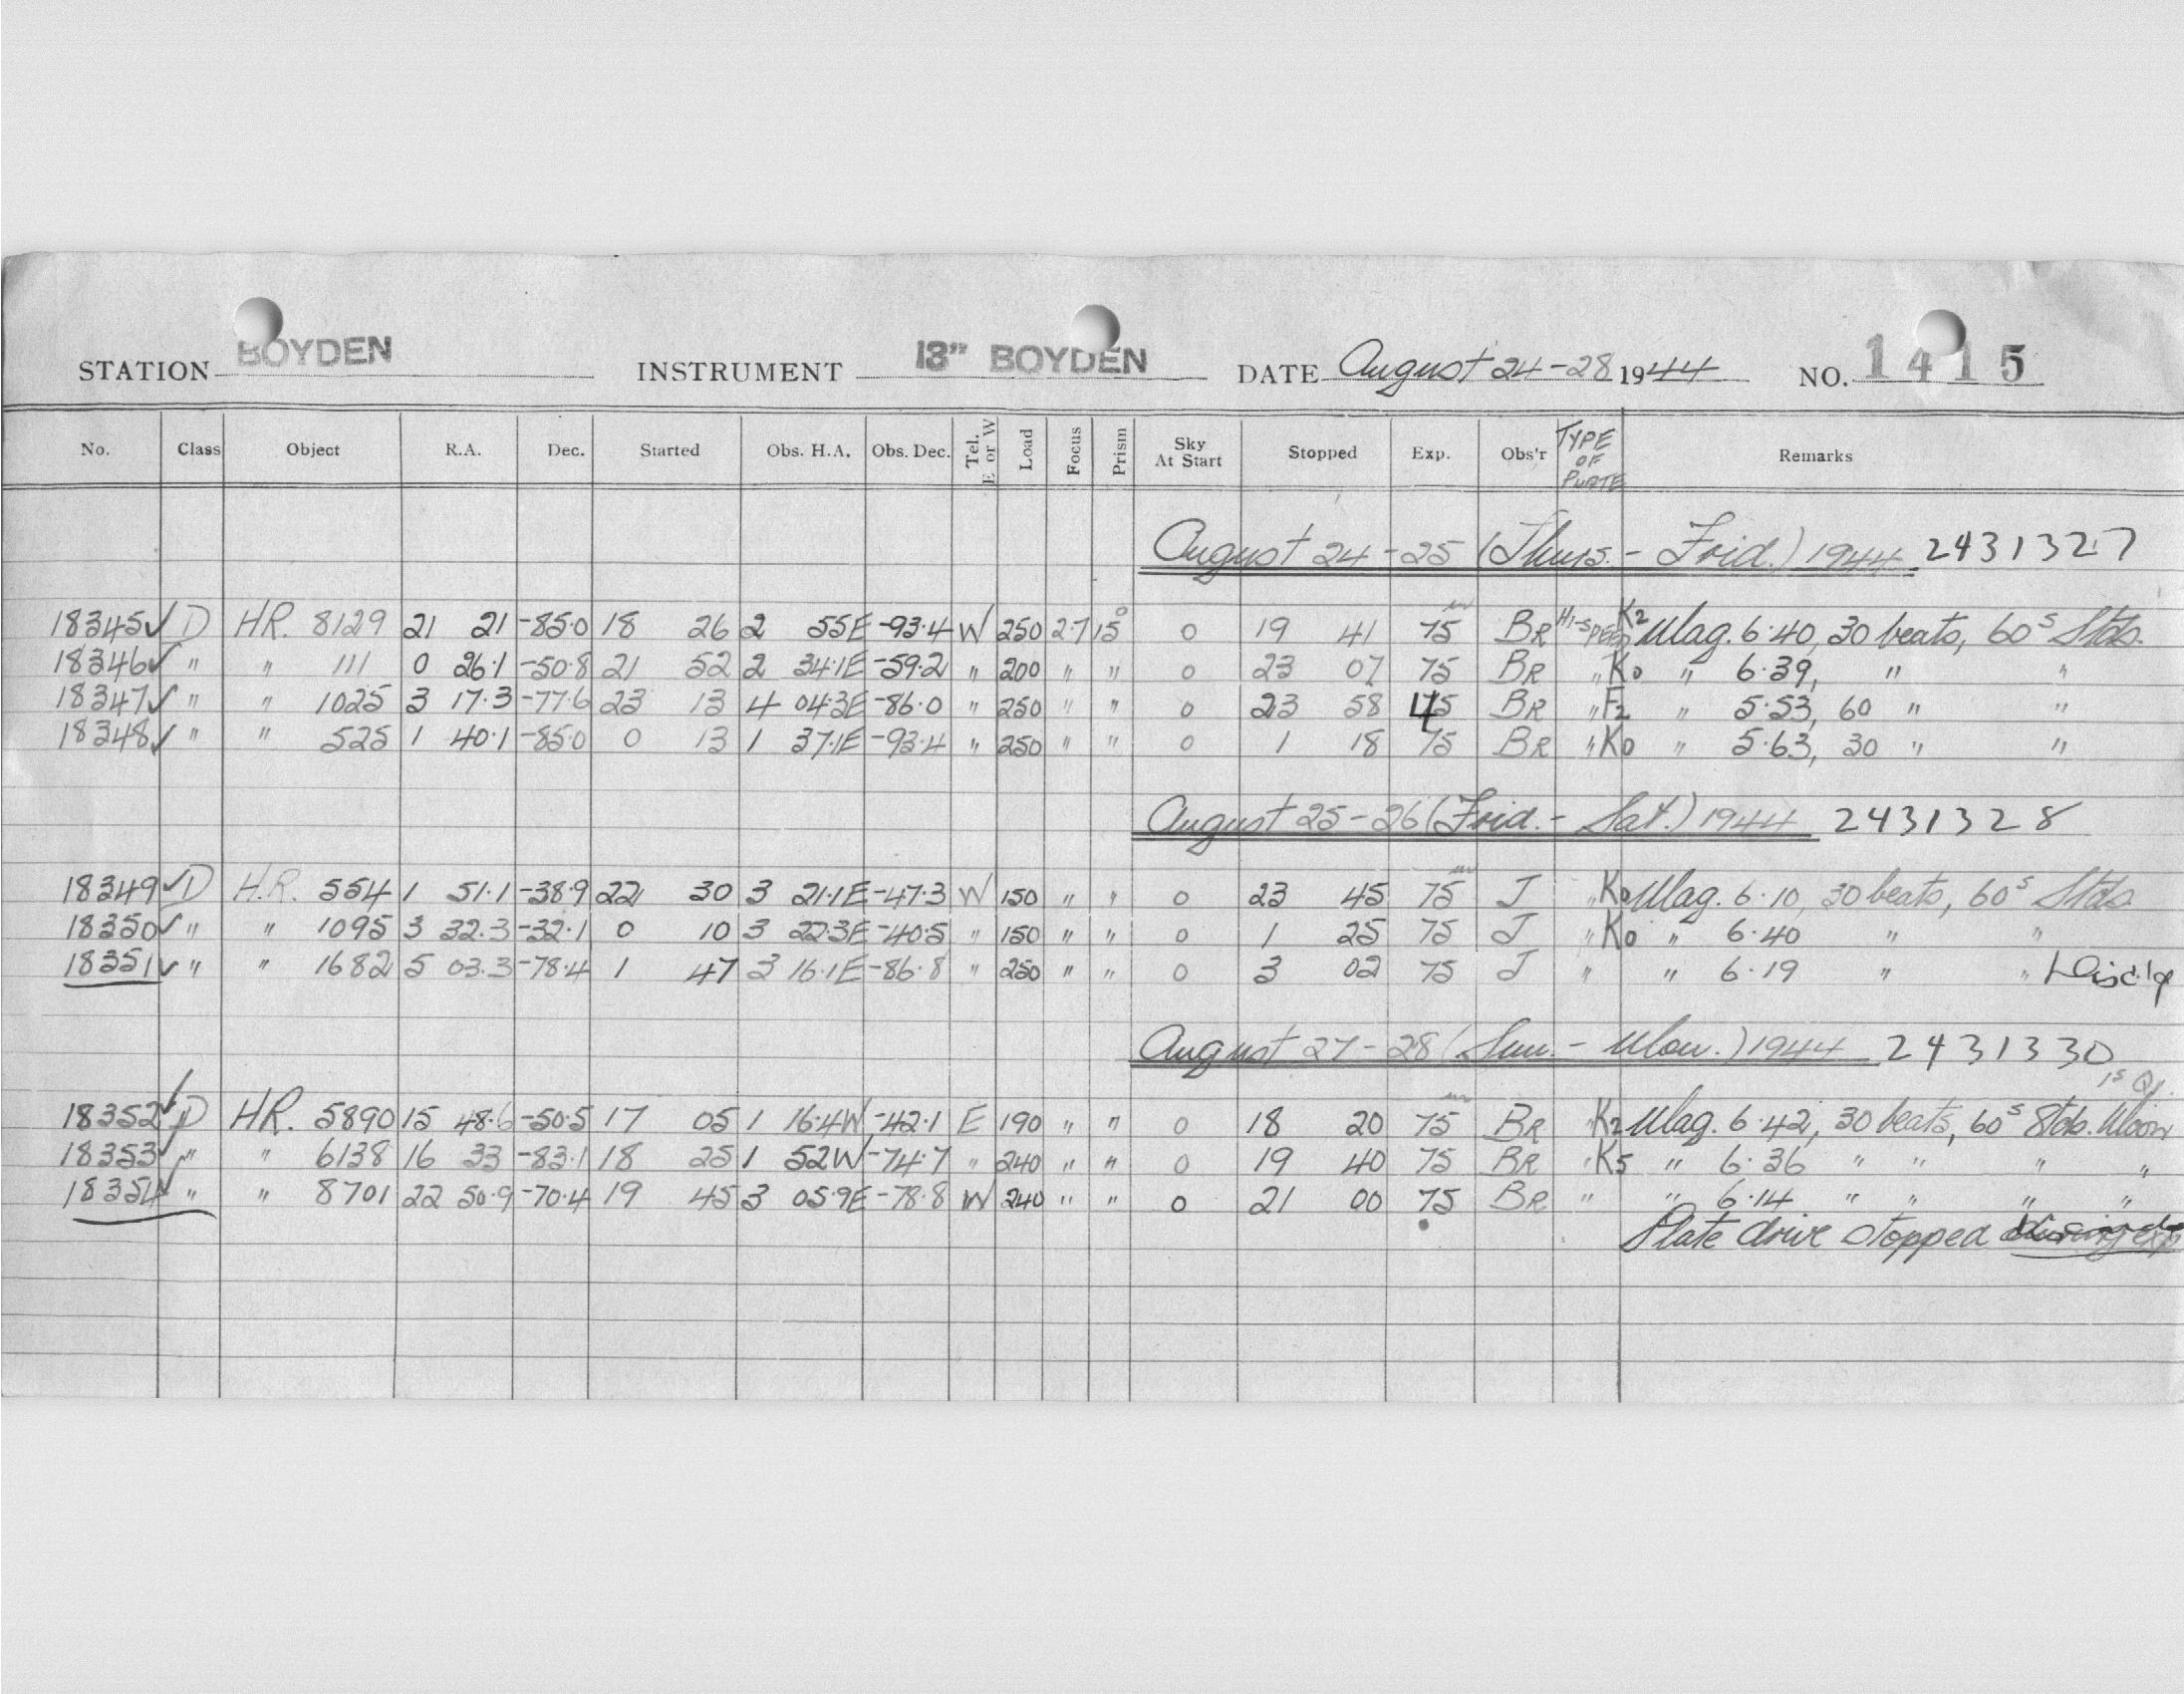 STATION BOYDEN INSTRUMENT 13" BOYDEN DATE August 24-28 1944 NO. 1415
No. Class Object R.A. Dec. Started Obs. H.A. Obs. Dec. Tel. E or W Load Focus Prism Sky At Start Stopped Exp. Obs'r TYPE OF PLATE Remarks
August 24-25 (Thurs.- Frid.) 1944 2431327
18345 ✓ D HR. 8129 21 21 -85.0 18 26 2 55E -93.4 W 250 2.7 15° 0 19 41 75m BR HI-SPEED K2 Mag. 6.40, 30 beats, 60s Stds.
18346 ✓ " " 111 0 26.1 -50.8 21 52 2 34.1E -59.2 " 200 " " 0 23 07 75 BR " K0 " 6.39, " "
18347 ✓ " " 1025 3 17.3 -77.6 23 13 4 04.3E -86.0 " 250 " " 0 23 58 45 BR " F2 " 5.53, 60 " "
18348 ✓ " " 525 1 40.1 -85.0 0 13 1 37.1E -93.4 " 250 " " 0 1 18 75 BR " K0 " 5.63, 30 " "
August 25-26 (Frid.- Sat.) 1944 2431328
18349 ✓ D H.R. 554 1 51.1 -38.9 22 30 3 21.1E -47.3 W 150 " " 0 23 45 75m J " K0 Mag. 6.10, 30 beats, 60s Stds.
18350 ✓ " " 1095 3 32.3 -32.1 0 10 3 22.3E -40.5 " 150 " " 0 1 25 75 J " K0 " 6.40 " "
18351 ✓ " " 1682 5 03.3 -78.4 1 47 3 16.1E -86.8 " 250 " " 0 3 02 75 J " " 6.19 " "
August 27-28 (Sun.- Mon.) 1944 2431330
18352 ✓ D HR. 5890 15 48.6 -50.5 17 05 1 16.4W -42.1 E 190 " " 0 18 20 75m BR " K2 Mag. 6.42, 30 beats, 60s Stds. 1s Q. Moon
18353 ✓ " " 6138 16 33 -83.1 18 25 1 52W -74.7 " 240 " " 0 19 40 75 BR " K5 " 6.36 " " " "
18354 ✓ " " 8701 22 50.9 -70.4 19 45 3 05.9E -78.8 W 240 " " 0 21 00 75 BR " " 6.14 " " " "
Plate drive stopped during exp